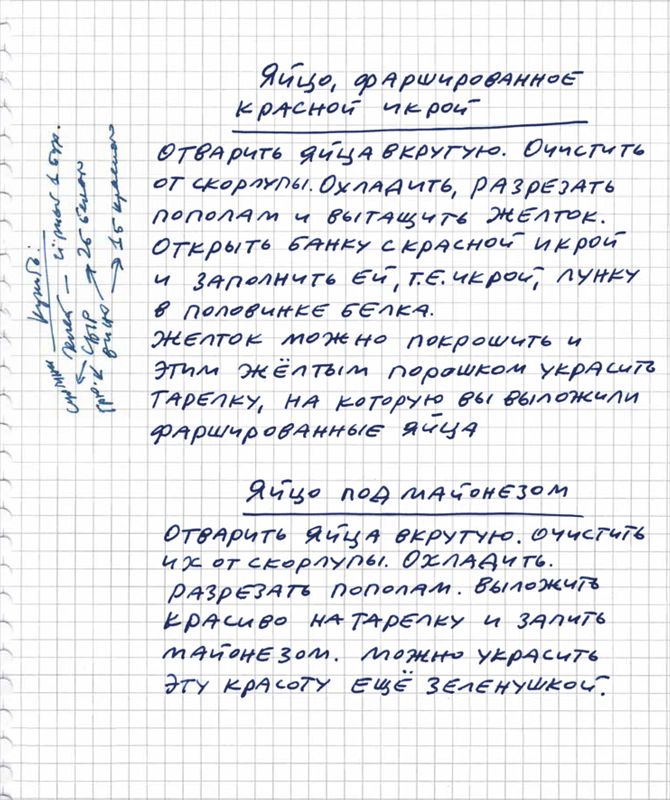 Яйцо, фаршированное
красной икрой
Отварить яйца вкрутую. Очистить
от скорлупы. Охладить, разрезать
пополам и вытащить желток.
Открыть банку с красной икрой
и заполнить ей, т.е. икрой, лунку
в половинке белка.
Желток можно покрошить и
этим жёлтым порошком украсить
тарелку, на которую вы выложили
фаршированные яйца
Яйцо под майонезом
Отварить яйца вкрутую. Очистить
их от скорлупы. Охладить.
Разрезать пополам. Выложить
красиво на тарелку и запить
майонезом. Можно украсить
эту красоту ещё зеленушкой.
Купить:
хлеб
сыр
вино → 2б белого
→ 1б красного